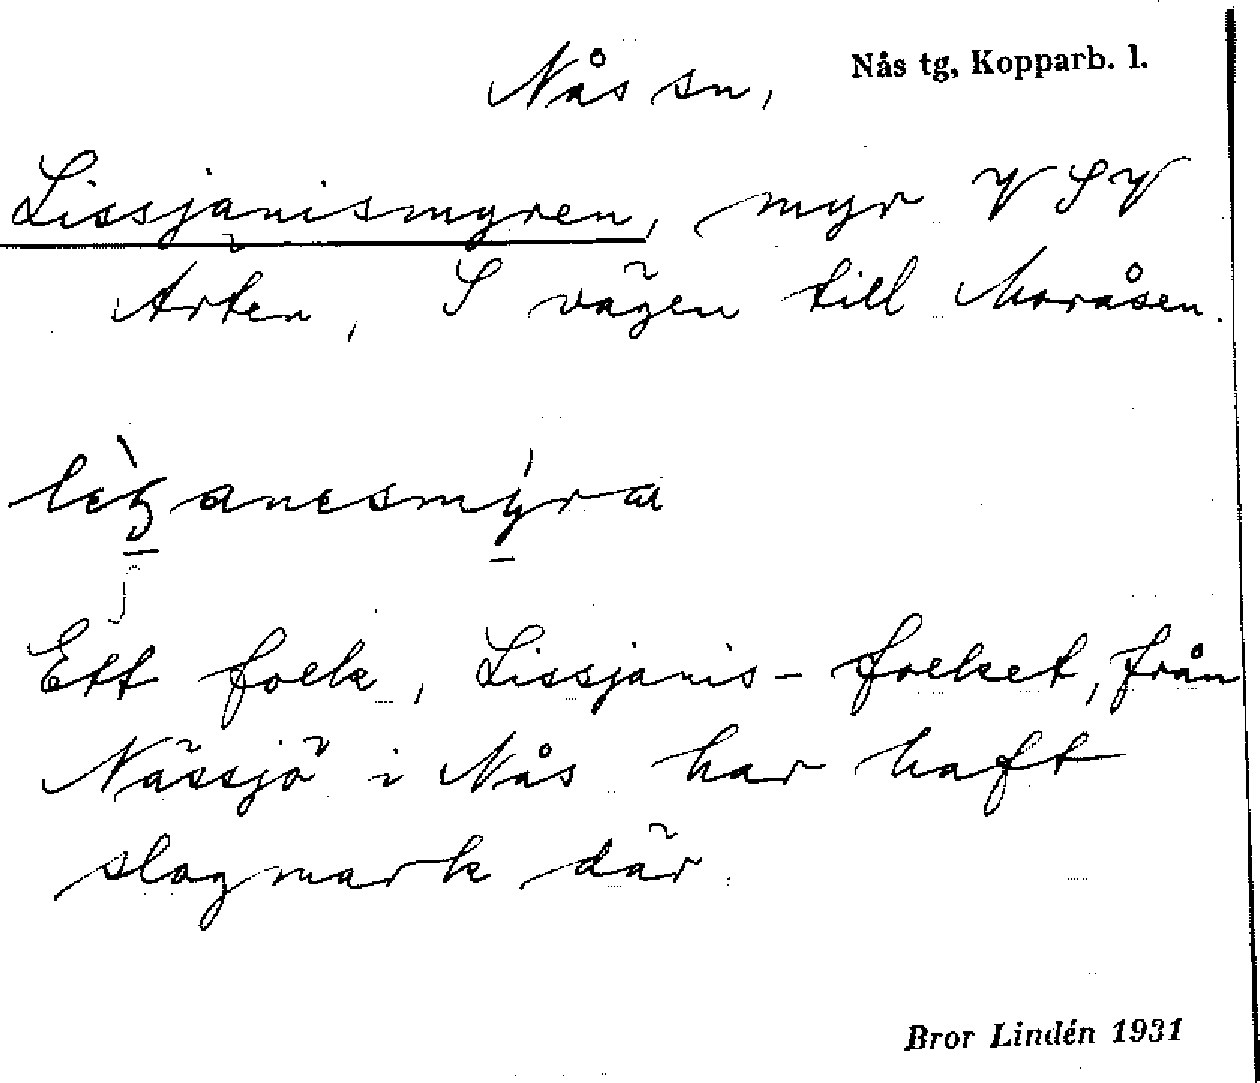 Nås tg, Kopparb. l.
Nås sn,
Lissjanismyren, myr VSV
Ärten, S vägen till Moråsen.
Ett folk, Lissjanis-folket, från
Nässjö i Nås har haft
slogmark där.
Bror Lindén 1931